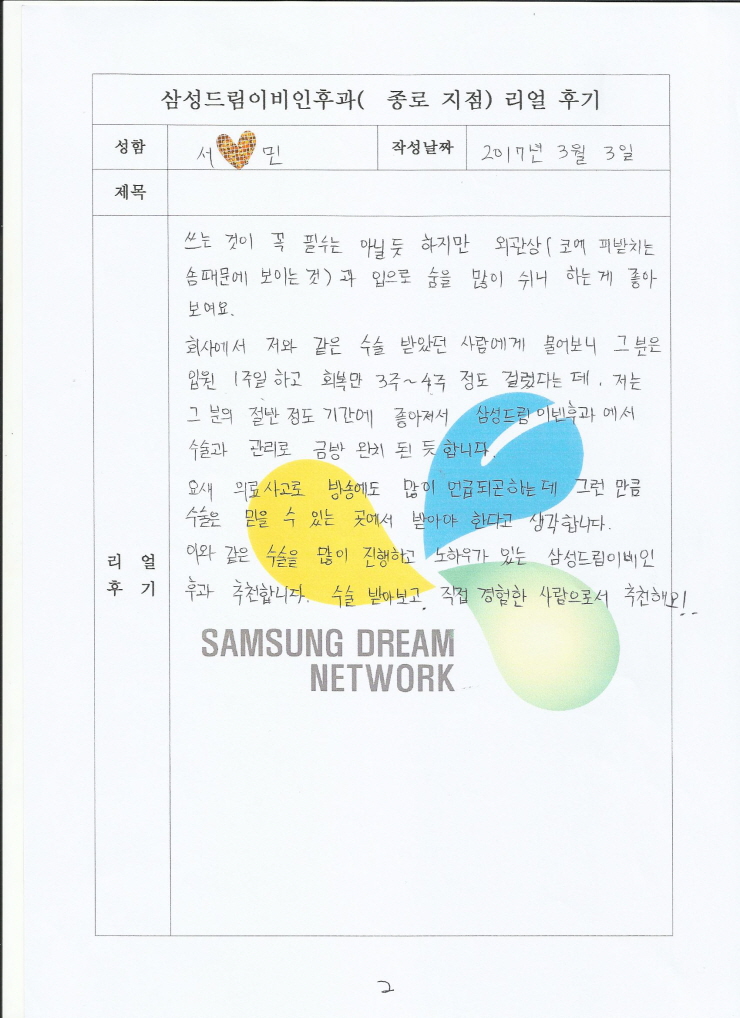 삼성드림이비인후과( 종로 지점) 리얼 후기
성함 서 민 작성날짜 2017년 3월 3일
제목
쓰는 것이 꼭 필수는 아닐듯 하지만 외관상(코에 피받치는
솜때문에 보이는것)과 입으로 숨을 많이 쉬니 하는게 좋아
보여요.
회사에서 저와 같은 수술 받았던 사람에게 물어보니 그분은
입원 1주일하고 회복만 3주~4주 정도 걸렸다는데, 저는
그 분의 절반 정도 기간에 좋아져서 삼성드림이빈후과에서
수술과 관리로 금방 완치 된 듯 합니다.
요새 의료사고로 방송에도 많이 언급되곤하는데 그런 만큼
수술은 믿을 수 있는 곳에서 받아야 한다고 생각합니다.
이와 같은 수술을 많이 진행하고 노하우가 있는 삼성드림이비인
후과 추천합니다. 수술 받아보고, 직접 경험한 사람으로서 추천해요!..
리얼
후기
SAMSUNG DREAM
NETWORK
2